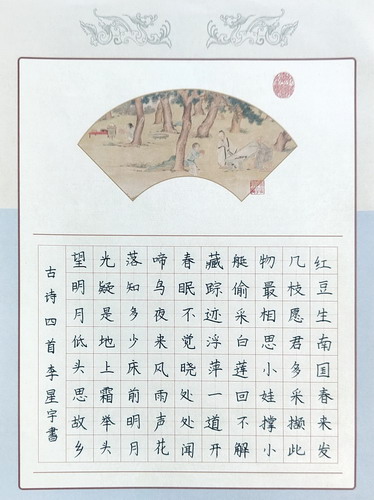 红豆生南国春来发
几枝愿君多采撷此
物最相思小娃撑小
艇偷采白莲回不解
藏踪迹浮萍一道开
春眠不觉晓处处闻
啼鸟夜来风雨声花
落知多少床前明月
光疑是地上霜举头
望明月低头思故乡
古诗四首李星宇書